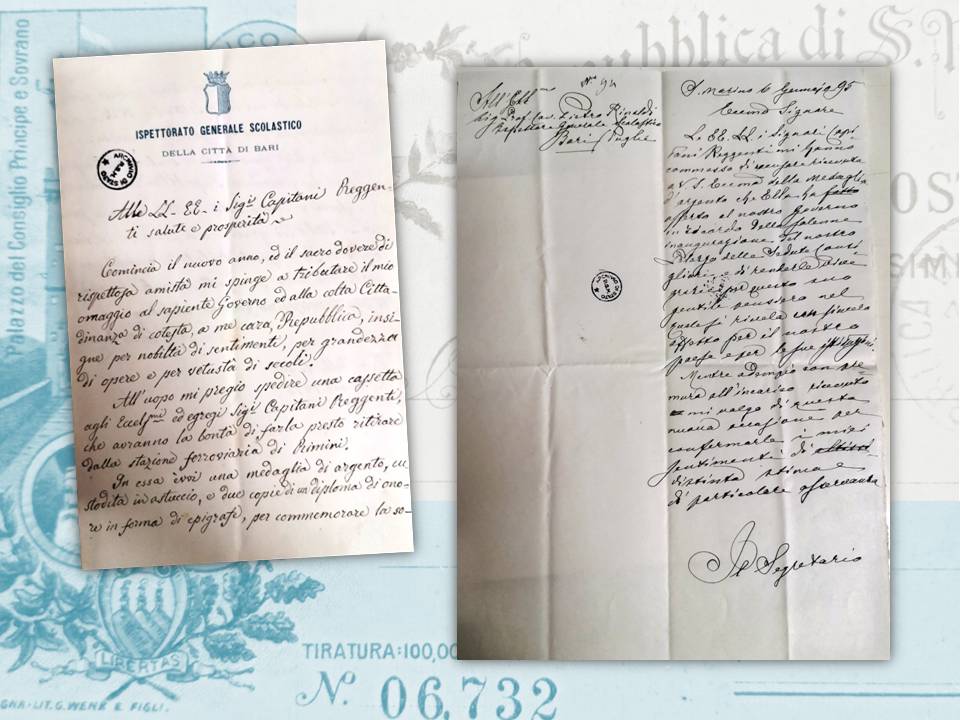 Palazzo del Consiglio Principe e Sovrano
Repubblica di S.
ISPETTORATO GENERALE SCOLASTICO
DELLA CITTÀ DI BARI
ARCHIVIO DI STATO
R.S.M.
Alle LL. EE. i Sigi Capitani Reggen-
ti salute e prosperità
Comincia il nuovo anno, ed il sacro dovere di
rispettosa amistà mi spinge a tributare il mio
omaggio al sapiente Governo ed alla colta Citta-
dinanza di cotesta, a me cara, Repubblica, insi-
gne per nobiltà di sentimenti, per grandezza
di opere e per vetustà di secoli.
All'uopo mi pregio spedire una cassetta
agli Eccelmi ed egregi Sigi Capitani Reggenti,
che avranno la bontà di farla presto ritirare
dalla stazione ferroviaria di Rimini.
In essa èvvi una medaglia di argento, cu
stodita in astuccio, e due copie di un diploma di ono-
re in forma di epigrafe, per commemorare la so-
All'Ill
Sig. Prof. Cav. Pietro Rinaldi
Ispettore Generale Scolastico
Bari Puglie
S. Marino 6 Gennajo 95
Signore
Le EE. LL. i Signori Capi
tani Reggenti mi hanno
commesso di accusare ricevuta
a V. S. della Medaglia
d'argento che Ella ha
offerto al nostro Governo
in ricordo della solenne
inaugurazione del nostro
Palazzo delle Sedute Consi
gliari, e di renderle vive
grazie per questo suo
gentile pensiero nel
quale si rivela un sincero
affetto per il nostro
paese e per le sue istituzioni.
Mentre adempio con pre
mura all'incarico ricevuto
mi valgo di questa
nuova occasione per
confermarle i miei
sentimenti di
distinta stima e
di particolare osservanza
Il Segretario
ARCHIVIO DI STATO
R.S.M.
LIBERTAS
TIRATURA:100,00
No. 06,732
LIT. G. WENK E FIGLI.